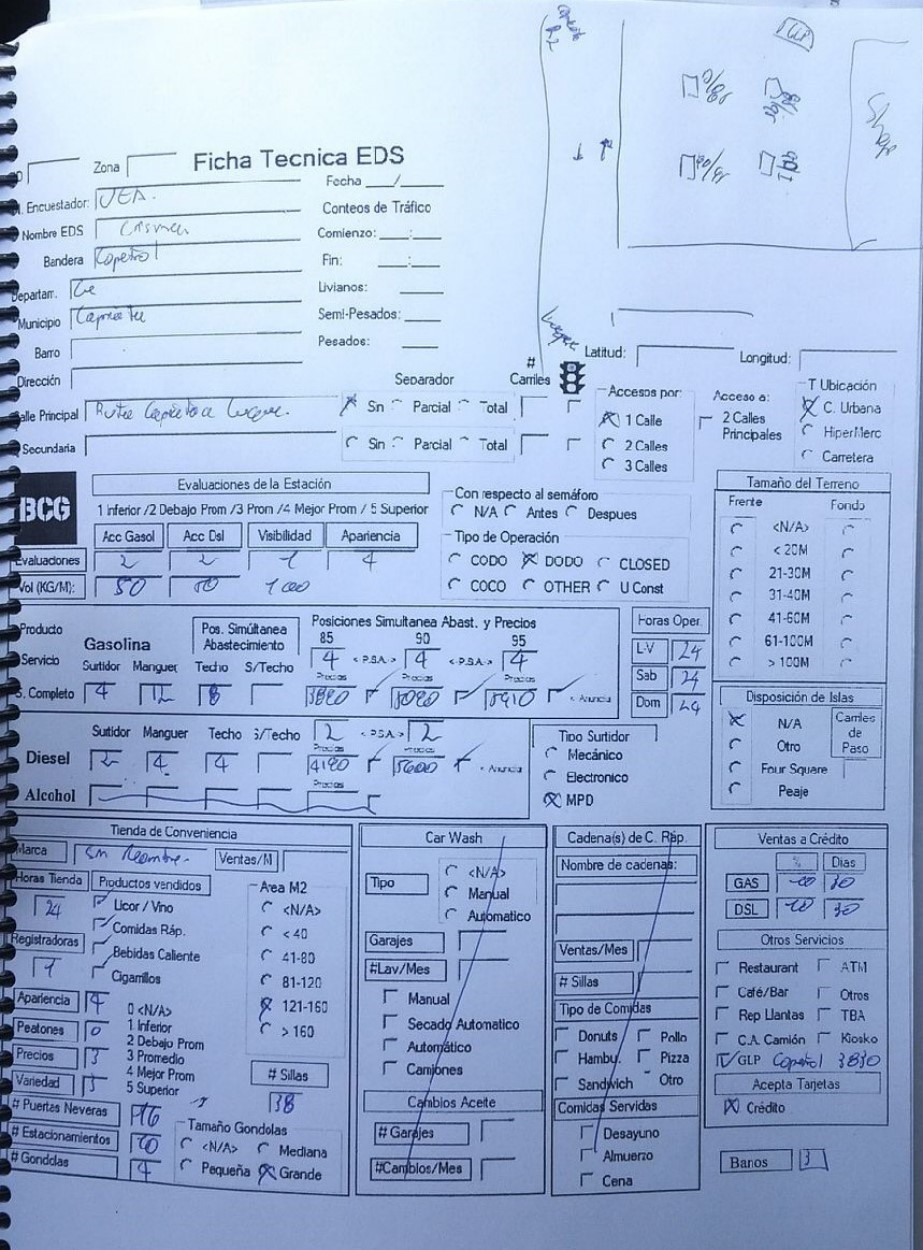 Shop
GLP
Ficha Tecnica EDS
Zona
Fecha ___/___
Encuestador:
Conteos de Tráfico
Nombre EDS
Comienzo: ___:___
Bandera Copetrol
Fin: ___:___
Departam.
Livianos:
Municipio
Semi-Pesados:
Barro
Pesados:
Dirección
Latitud:
Longitud:
Separador
# Carriles
Calle Principal Ruta
Sin Parcial Total
Secundaria
Sin Parcial Total
Accesos por:
1 Calle
2 Calles
3 Calles
Acceso a:
2 Calles Principales
T Ubicación
C. Urbana
HiperMerc
Carretera
BCG
Evaluaciones de la Estación
1 Inferior /2 Debajo Prom /3 Prom /4 Mejor Prom / 5 Superior
Acc Gasol Acc Dsl Visibilidad Apariencia
Evaluaciones 2 2 1 4
Vol (KG/M): 50
Con respecto al semáforo
N/A Antes Despues
Tipo de Operación
CODO DODO CLOSED
COCO OTHER U Const
Tamaño del Terreno
Frente Fondo
<N/A>
< 20M
21-30M
31-40M
41-60M
61-100M
> 100M
Producto
Gasolina
Pos. Simúltanea Abastecimiento
Posiciones Simultanea Abast. y Precios
85 90 95
4 < P.S.A. > 4 < P.S.A. > 4
Servicio
Surtidor Manguer Techo S/Techo
Precios Precios Precios
S. Completo 4 12 8 < Anuncia
Horas Oper.
L-V 24
Sab 24
Dom 24
Disposición de Islas
N/A
Otro
Four Square
Peaje
Carriles de Paso
Surtidor Manguer Techo S/Techo 2 < P.S.A. > 2
Precios Precios
Diesel 2 4 4 4190 5600 < Anuncia
Precios
Alcohol
Tipo Surtidor
Mecánico
Electronico
MPD
Tienda de Conveniencia
Marca Sin Nombre. Ventas/M
Horas Tienda 24
Productos vendidos
Licor / Vino
Comidas Ráp.
Bebidas Caliente
Cigarrillos
Registradoras 1
Area M2
<N/A>
< 40
41-80
81-120
121-160
> 160
Apariencia 4
Peatones 0
Precios 3
Variedad 3
0 <N/A>
1 Inferior
2 Debajo Prom
3 Promedio
4 Mejor Prom
5 Superior
# Sillas
38
# Puertas Neveras 16
# Estacionamientos 10
# Gondolas 4
Tamaño Gondolas
<N/A> Mediana
Pequeña Grande
Car Wash
Tipo
<N/A>
Manual
Automatico
Garajes
#Lav/Mes
Manual
Secado Automatico
Automático
Camiones
Cambios Aceite
# Garajes
#Cambios/Mes
Cadena(s) de C. Ráp.
Nombre de cadenas:
Ventas/Mes
# Sillas
Tipo de Comidas
Donuts Pollo
Hambu. Pizza
Sandwich Otro
Comidas Servidas
Desayuno
Almuerzo
Cena
Ventas a Crédito
% Dias
GAS 30
DSL 30
Otros Servicios
Restaurant ATM
Café/Bar Otros
Rep Llantas TBA
C.A. Camión Kiosko
GLP Copetrol 3830
Acepta Tarjetas
Crédito
Banos 3